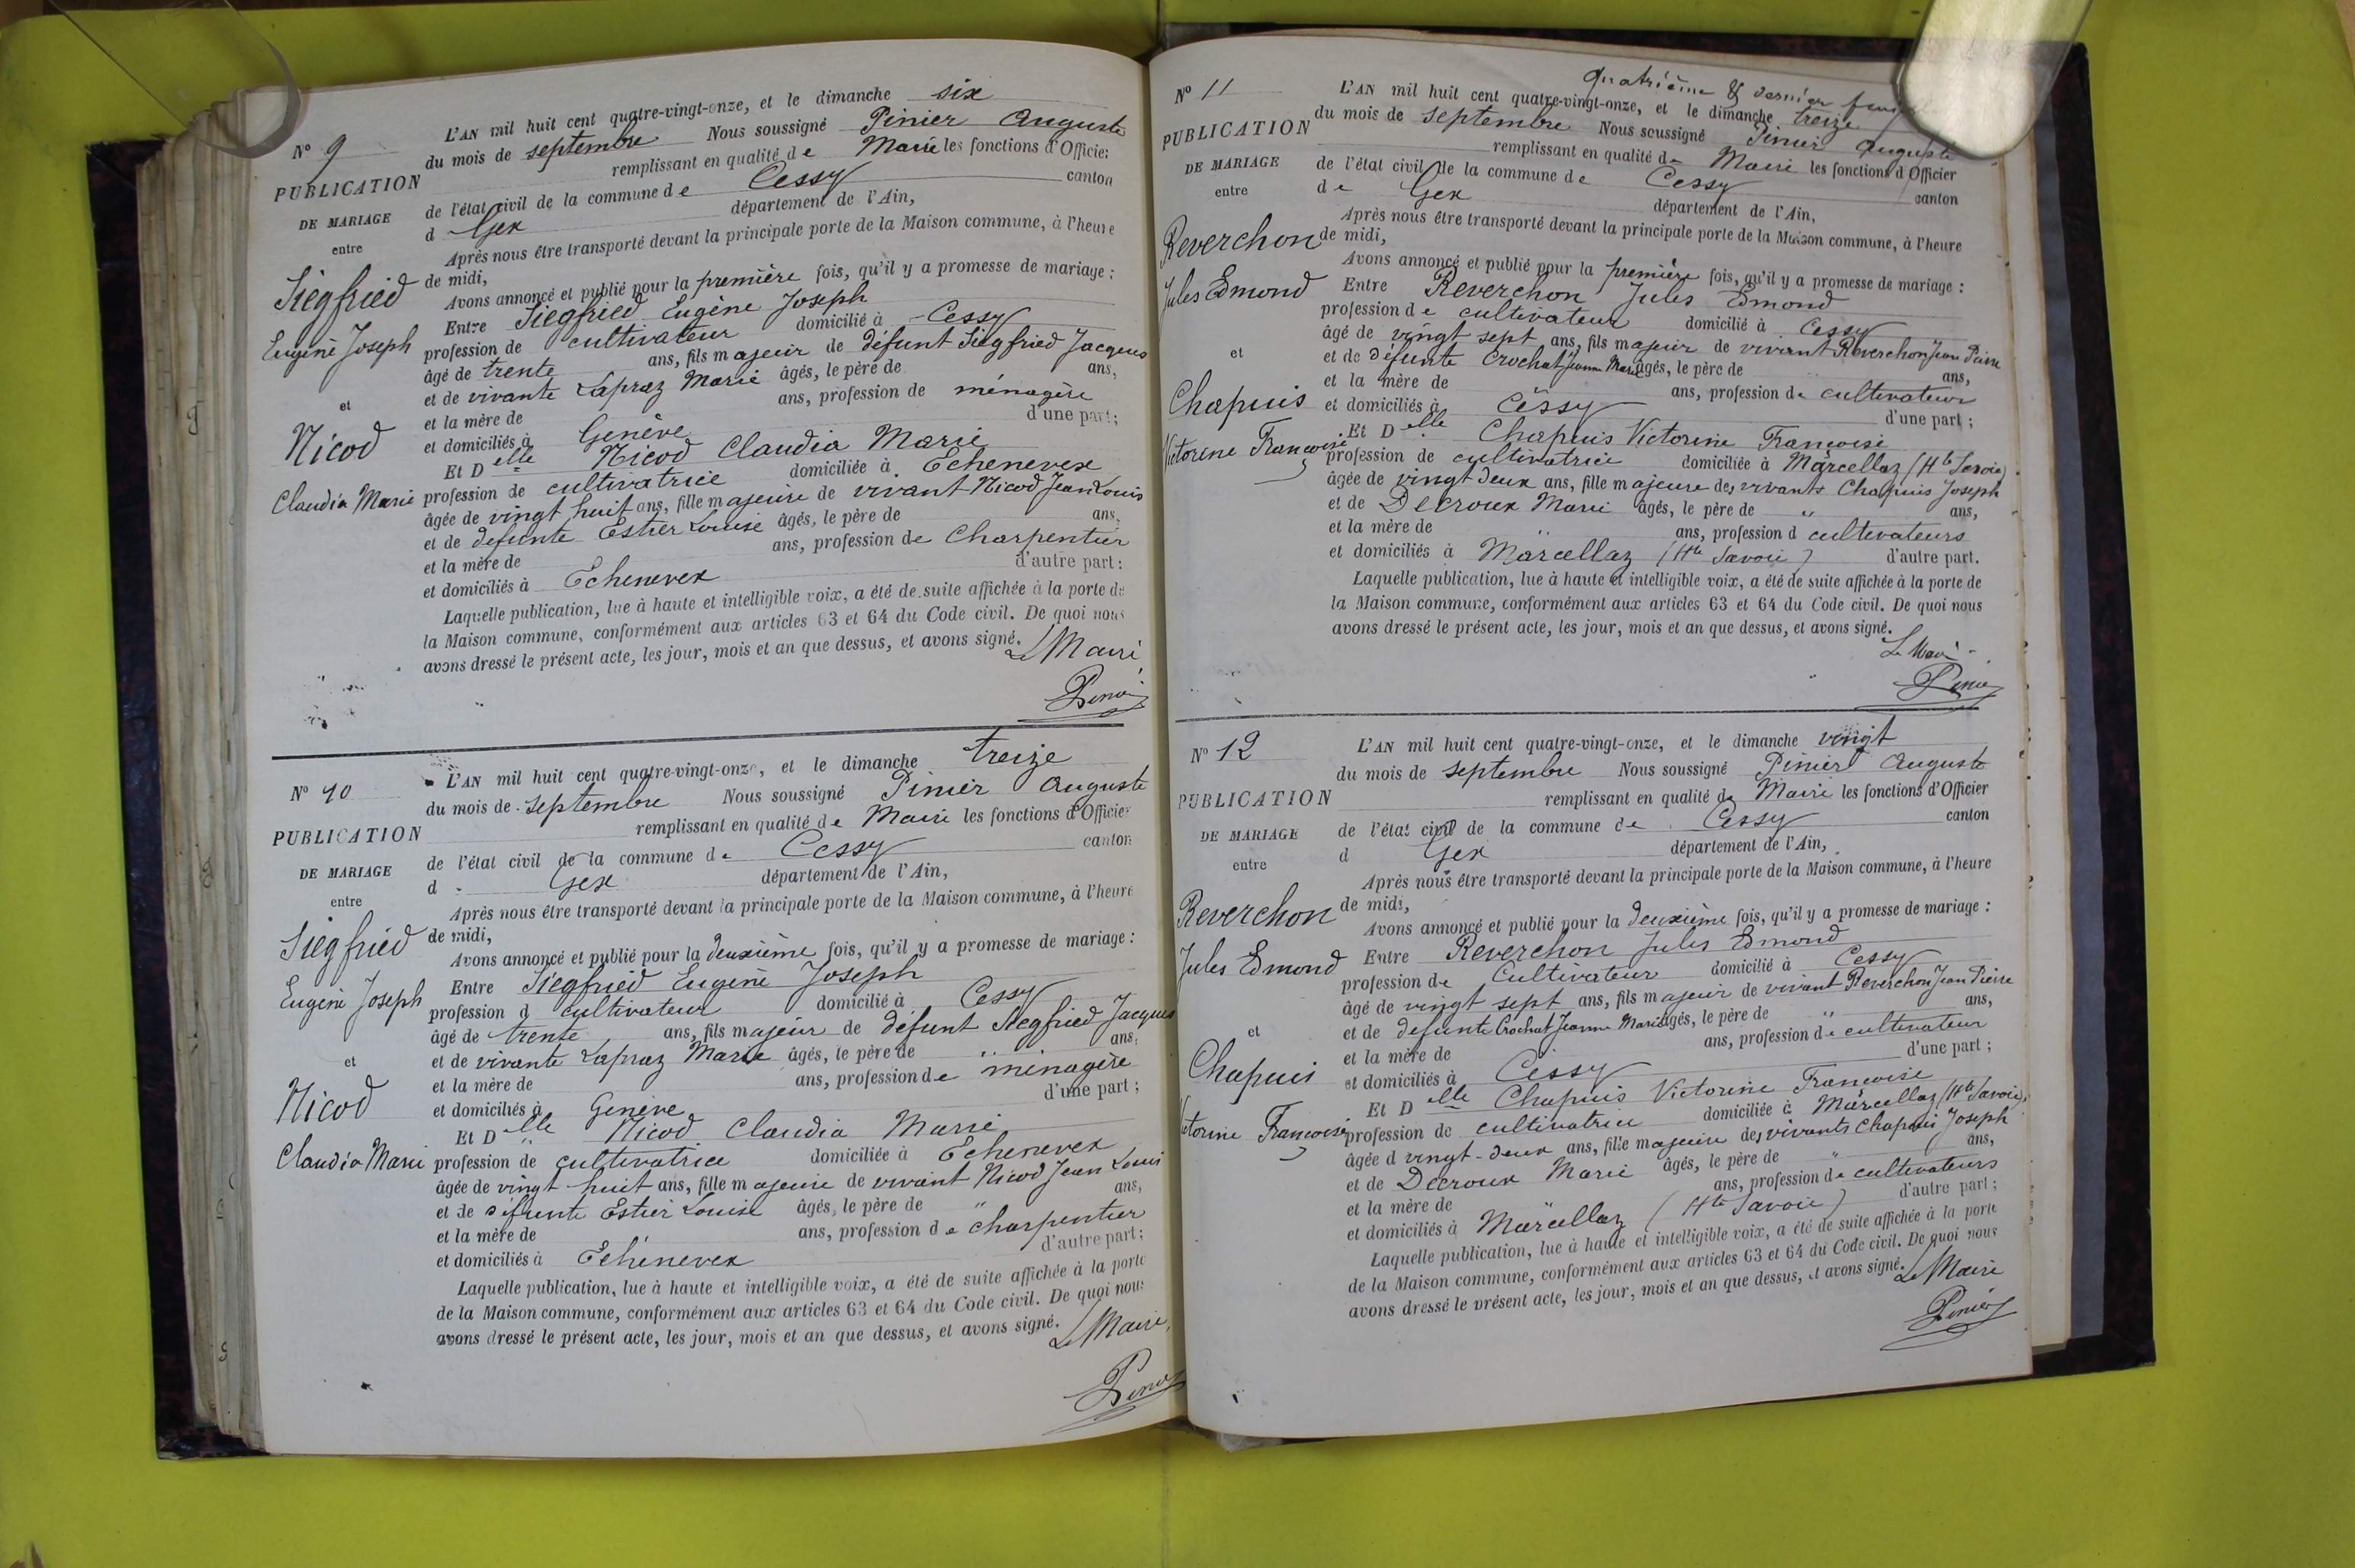 L'AN mil huit cent quatre-vingt-onze, et le dimanche six
N° 9
du mois de septembre Nous soussigné Pinier Auguste
PUBLICATION
remplissant en qualité de Maire les fonctions d'Officier
DE MARIAGE
de l'état civil de la commune de Cessy canton
entre
d Gex département de l'Ain,
Après nous être transporté devant la principale porte de la Maison commune, à l'heure
de midi,
Siegfried
Avons annoncé et publié pour la première fois, qu'il y a promesse de mariage :
Eugène Joseph
Entre Siegfried Eugène Joseph
profession de cultivateur domicilié à Cessy
âgé de trente ans, fils majeur de défunt Siegfried Jacques
et
et de vivante Lapraz Marie âgés, le père de ans,
et la mère de ans, profession de ménagère
Nicod
et domiciliés à Genève d'une part;
Claudia Marie
Et Delle Nicod Claudia Marie
profession de cultivatrice domiciliée à Echenevex
âgée de vingt huit ans, fille majeure de vivant Nicod Jean Louis
et de defunte Estier Louise âgés, le père de ans,
et la mère de ans, profession de Charpentier
et domiciliés à Echenevex d'autre part:
Laquelle publication, lue à haute et intelligible voix, a été de suite affichée à la porte de
la Maison commune, conformément aux articles 63 et 64 du Code civil. De quoi nous
avons dressé le présent acte, les jour, mois et an que dessus, et avons signé.
Le Maire
Pinier
L'AN mil huit cent quatre-vingt-onze, et le dimanche treize
N° 10
du mois de septembre Nous soussigné Pinier Auguste
PUBLICATION
remplissant en qualité de Maire les fonctions d'Officier
DE MARIAGE
de l'état civil de la commune de Cessy canton
entre
d Gex département de l'Ain,
Après nous être transporté devant la principale porte de la Maison commune, à l'heure
Siegfried
de midi,
Avons annoncé et publié pour la deuxième fois, qu'il y a promesse de mariage :
Eugène Joseph
Entre Siegfried Eugène Joseph
profession d cultivateur domicilié à Cessy
âgé de trente ans, fils majeur de défunt Siegfried Jacques
et
et de vivante Lapraz Marie âgés, le père de " ans,
et la mère de ans, profession de ménagère
Nicod
et domiciliés à Genève d'une part ;
Claudia Marie
Et Delle Nicod Claudia Marie
profession de cultivatrice domiciliée à Echenevex
âgée de vingt-huit ans, fille majeure de vivant Nicod Jean Louis
et de défunte Estier Louise âgés, le père de " ans,
et la mère de ans, profession de charpentier
et domiciliés à Echenevex d'autre part;
Laquelle publication, lue à haute et intelligible voix, a été de suite affichée à la porte
de la Maison commune, conformément aux articles 63 et 64 du Code civil. De quoi nous
avons dressé le présent acte, les jour, mois et an que dessus, et avons signé.
Le Maire
Pinier
Quatrième & dernier
N° 11
L'AN mil huit cent quatre-vingt-onze, et le dimanche treize
PUBLICATION
du mois de septembre Nous soussigné Pinier Auguste
DE MARIAGE
remplissant en qualité de Maire les fonctions d'Officier
entre
de l'état civil de la commune de Cessy canton
de Gex département de l'Ain,
Après nous être transporté devant la principale porte de la Maison commune, à l'heure
Reverchon
de midi,
Jules Edmond
Avons annoncé et publié pour la première fois, qu'il y a promesse de mariage :
Entre Reverchon Jules Edmond
profession de cultivateur domicilié à Cessy
et
âgé de vingt sept ans, fils majeur de vivant Reverchon Jean Pierre
et de défunte Crochat Jeanne Marie âgés, le père de ans,
Chapuis
et la mère de ans, profession de cultivateur
et domiciliés à Cessy d'une part ;
Victorine Françoise
Et Delle Chapuis Victorine Françoise
profession de cultivatrice domiciliée à Marcellaz (Hte Savoie)
âgée de vingt deux ans, fille majeure des vivants Chapuis Joseph
et de Decroux Marie âgés, le père de " ans,
et la mère de " ans, profession d cultivateurs
et domiciliés à Marcellaz (Hte Savoie) d'autre part.
Laquelle publication, lue à haute et intelligible voix, a été de suite affichée à la porte de
la Maison commune, conformément aux articles 63 et 64 du Code civil. De quoi nous
avons dressé le présent acte, les jour, mois et an que dessus, et avons signé.
Le Maire
Pinier
N° 12
L'AN mil huit cent quatre-vingt-onze, et le dimanche vingt
du mois de septembre Nous soussigné Pinier Auguste
PUBLICATION
remplissant en qualité de Maire les fonctions d'Officier
DE MARIAGE
de l'état civil de la commune de Cessy canton
entre
d Gex département de l'Ain,
Après nous être transporté devant la principale porte de la Maison commune, à l'heure
Reverchon
de midi,
Avons annoncé et publié pour la deuxième fois, qu'il y a promesse de mariage :
Jules Edmond
Entre Reverchon Jules Edmond
profession de Cultivateur domicilié à Cessy
âgé de vingt sept ans, fils majeur de vivant Reverchon Jean Pierre
et
et de defunte Crochat Jeanne Marie âgés, le père de " ans,
Chapuis
et la mère de ans, profession de cultivateur
et domiciliés à Cessy d'une part ;
Victorine Françoise
Et Delle Chapuis Victorine Françoise
profession de cultivatrice domiciliée à Marcellaz (Hte Savoie)
âgée d vingt-deux ans, fille majeure des vivants Chapuis Joseph
et de Decroux Marie âgés, le père de " ans,
et la mère de ans, profession de cultivateurs
et domiciliés à Marcellaz (Hte Savoie) d'autre part;
Laquelle publication, lue à haute et intelligible voix, a été de suite affichée à la porte
de la Maison commune, conformément aux articles 63 et 64 du Code civil. De quoi nous
avons dressé le présent acte, les jour, mois et an que dessus, et avons signé.
Le Maire
Pinier